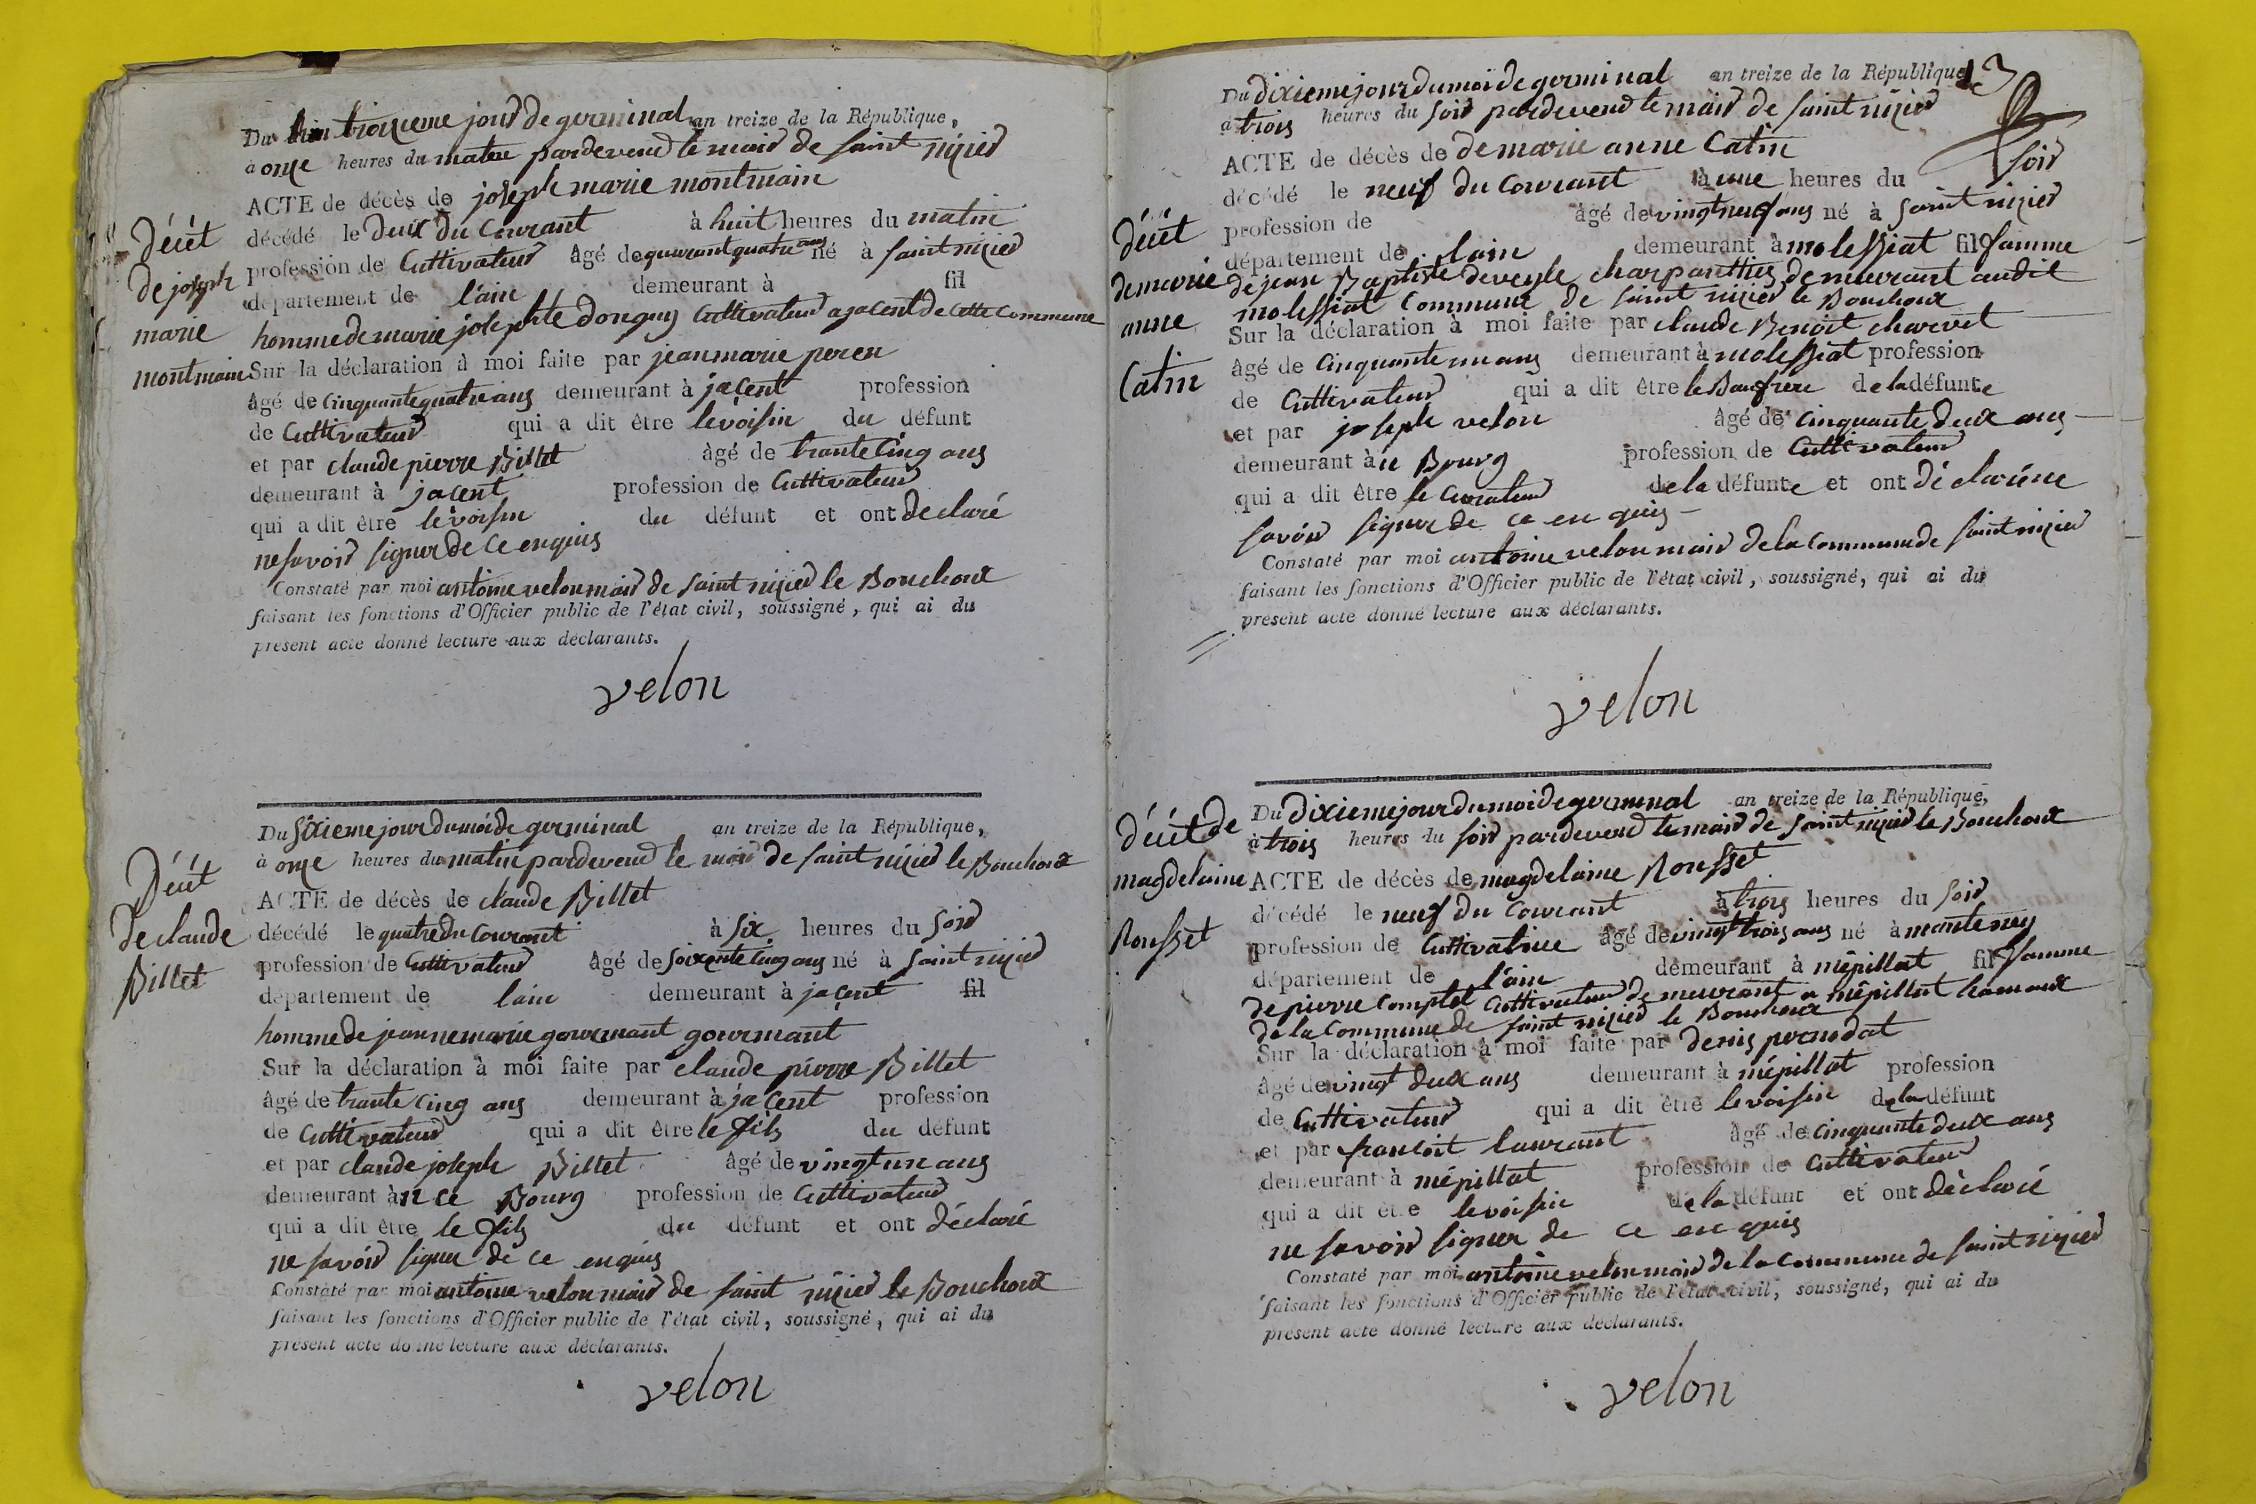 Du troixieme jour de germinal an treize de la République,
à onze heures du matin pardevend le maire de saint nizier
ACTE de décès de joseph marie montmain
décédé le deux du Courant à huit heures du matin
profession de Cultivateur Âgé de quarantquatre ans né à saint nizier
département de l'ain demeurant à fil
homme de marie josephte donguy Cultivateur a jacent de cette commune
Sur la déclaration à moi faite par jean marie
âgé de Cinquante quatre ans demeurant à jacent profession
de Cultivateur qui a dit être le voisin du défunt
et par claude pierre Billet âgé de trante Cinq ans
demeurant à jacent profession de Cultivateur
qui a dit être le voisin du défunt et ont declaré
ne savoir signer de ce enquis
Constaté par moi antoine velon maire de saint nizier le Bouchoux
faisant les fonctions d'Officier public de l'état civil, soussigné, qui ai du
présent acte donné lecture aux déclarants.
velon
décét
de joseph
marie
montmain
Du sixieme jour du moi de germinal an treize de la République,
à onze heures du matin pardevend le maire de saint nizier le Bouchoux
ACTE de décès de claude Billet
décédé le quatre du Courant à six heures du soir
profession de Cultivateur âgé de soixente Cinq ans né à saint nizier
département de lain demeurant à jacent fil
homme de jeanne marie gourmant gourmant
Sur la déclaration à moi faite par claude pierre Billet
âgé de trante Cinq ans demeurant à jacent profession
de Cultivateur qui a dit être le fils du défunt
et par claude joseph Billet âgé de vingt un ans
demeurant à n ce Bourg profession de Cultivateur
qui a dit être le fils du défunt et ont déclaré
ne savoir signer de ce enquis
Constaté par moi antoine velon maire de saint nizier le Bouchoux
faisant les fonctions d'Officier public de l'état civil, soussigné, qui ai du
présent acte donné lecture aux déclarants.
velon
Décét
de claude
Billet
Du dixieme jour du moi de germinal an treize de la République
à trois heures du soir pardevend le maire de saint nizier
ACTE de décès de de marie anne Catin
décédé le neuf du Courant à une heures du soir
profession de âgé de vingt neuf ans né à saint nizier
département de lain demeurant à molessiat fil famme
de jean Baptiste deveyle charpanttier demeurant audit
molessiat Commune de saint nizier le Bouchoux
Sur la déclaration à moi faite par claude Benoit charvet
âgé de Cinquante un ans demeurant à molessiat profession
de Cultivateur qui a dit être le Baufrere de la défunte
et par joseph velon âgé de Cinquante deux ans
demeurant à ce Bourg profession de Cultivateur
qui a dit être le Curateur de la défunte et ont déclaré ne
savoir signer de ce en quis
Constaté par moi antoine velon maire de la Commune de saint nizier
faisant les fonctions d'Officier public de l'état civil, soussigné, qui ai du
présent acte donné lecture aux déclarants.
velon
décét
de marie
anne
Catin
Du dixieme jour du moi de germinal an treize de la République,
à trois heures du soir pardevend le maire de saint nizier le Bouchoux
ACTE de décès de magdelaine Rousset
décédé le neuf du Courant à trois heures du soir
profession de Cultivatrice âgé de vingt trois ans né à manteney
département de l'ain demeurant à mépillat fil famme
de pierre Comptet Cultivateur demeurant a mépillat hamaux
de la Commune de saint nizier le Bouchoux
Sur la déclaration à moi faite par denis pernodat
âgé de vingt deux ans demeurant à mépillat profession
de Cultivateur qui a dit être le voisin de la défunt
et par francoit laurant âgé de Cinquante deux ans
demeurant à mépillat profession de Cultivateur
qui a dit être le voisin de la défunt et ont déclaré
ne savoir signer de ce en quis
Constaté par moi antoine velon maire de la Commune de saint nizier
faisant les fonctions d'Officier public de l'état civil, soussigné, qui ai du
présent acte donné lecture aux déclarants.
velon
décét de
magdelaine
Rousset